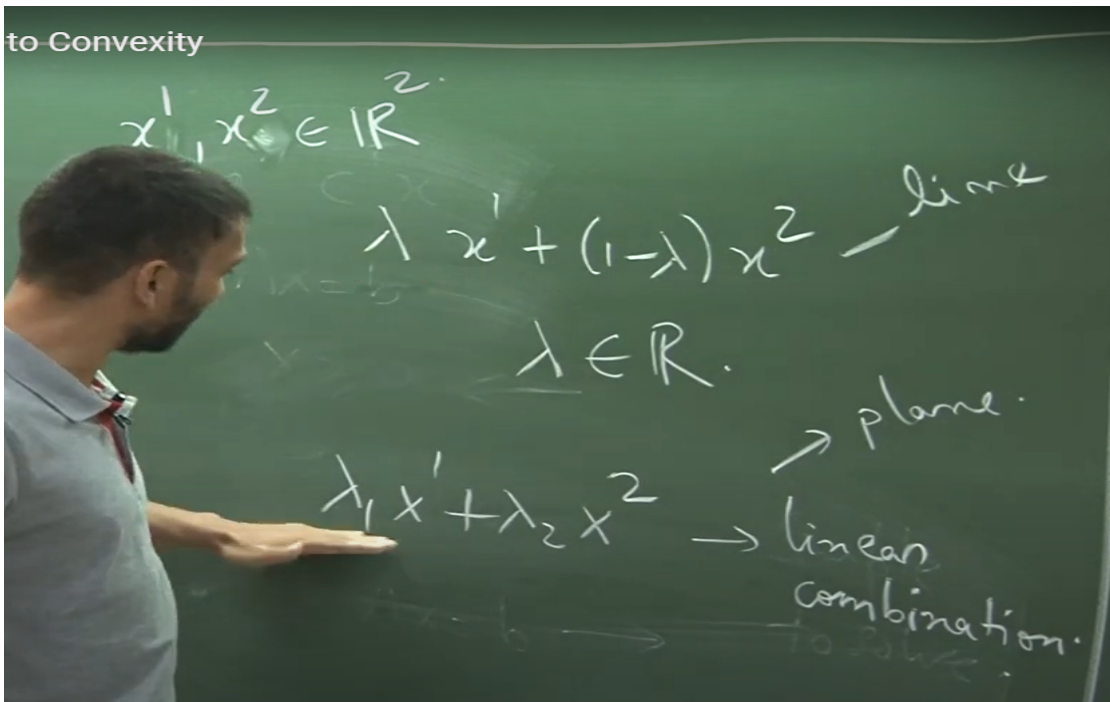 to Convexity
x¹, x² ∈ ℝ².
λ x¹ + (1-λ) x² — line
λ ∈ ℝ.
→ plane.
λ₁ x¹ + λ₂ x² → linear
combination.